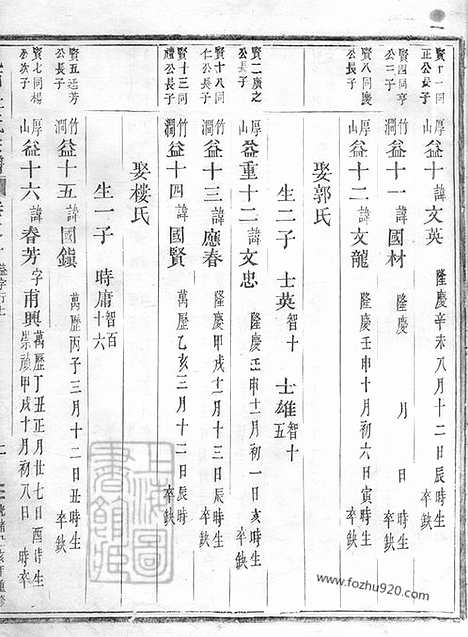 賢十一同正公長子
厚山 益十 諱文英 隆慶辛未八月十二日辰時生 卒缺
賢四同亨公二子
竹澗 益十一 諱國材 隆慶 月 日 時生 卒缺
賢八同慶公長子
厚山 益十二 諱文龍 隆慶壬申十月初六日寅時生 卒缺
娶郭氏
生二子 士英智十 士雄智十五
賢二廣之公長子
厚山 益重十二 諱文忠 隆慶壬申十一月初一日亥時生 卒缺
賢十八同仁公長子
竹澗 益十三 諱應春 隆慶甲戌十一月十三日辰時生 卒缺
賢十三同禮公長子
竹澗 益十四 諱國賢 萬歷乙亥三月十二日辰時生 卒缺
娶樓氏
生一子 時庸智百十六
賢五廷芳公長子
竹澗 益十五 諱國鎮 萬歷丙子三月十二日丑時生 卒缺
賢七同楊公次子
厚山 益十六 諱春芳 字甫興 萬歷丁丑正月廿七日酉時生 崇禎甲戌十月初八日 時卒
上海圖書館藏
www.fozhu920.com